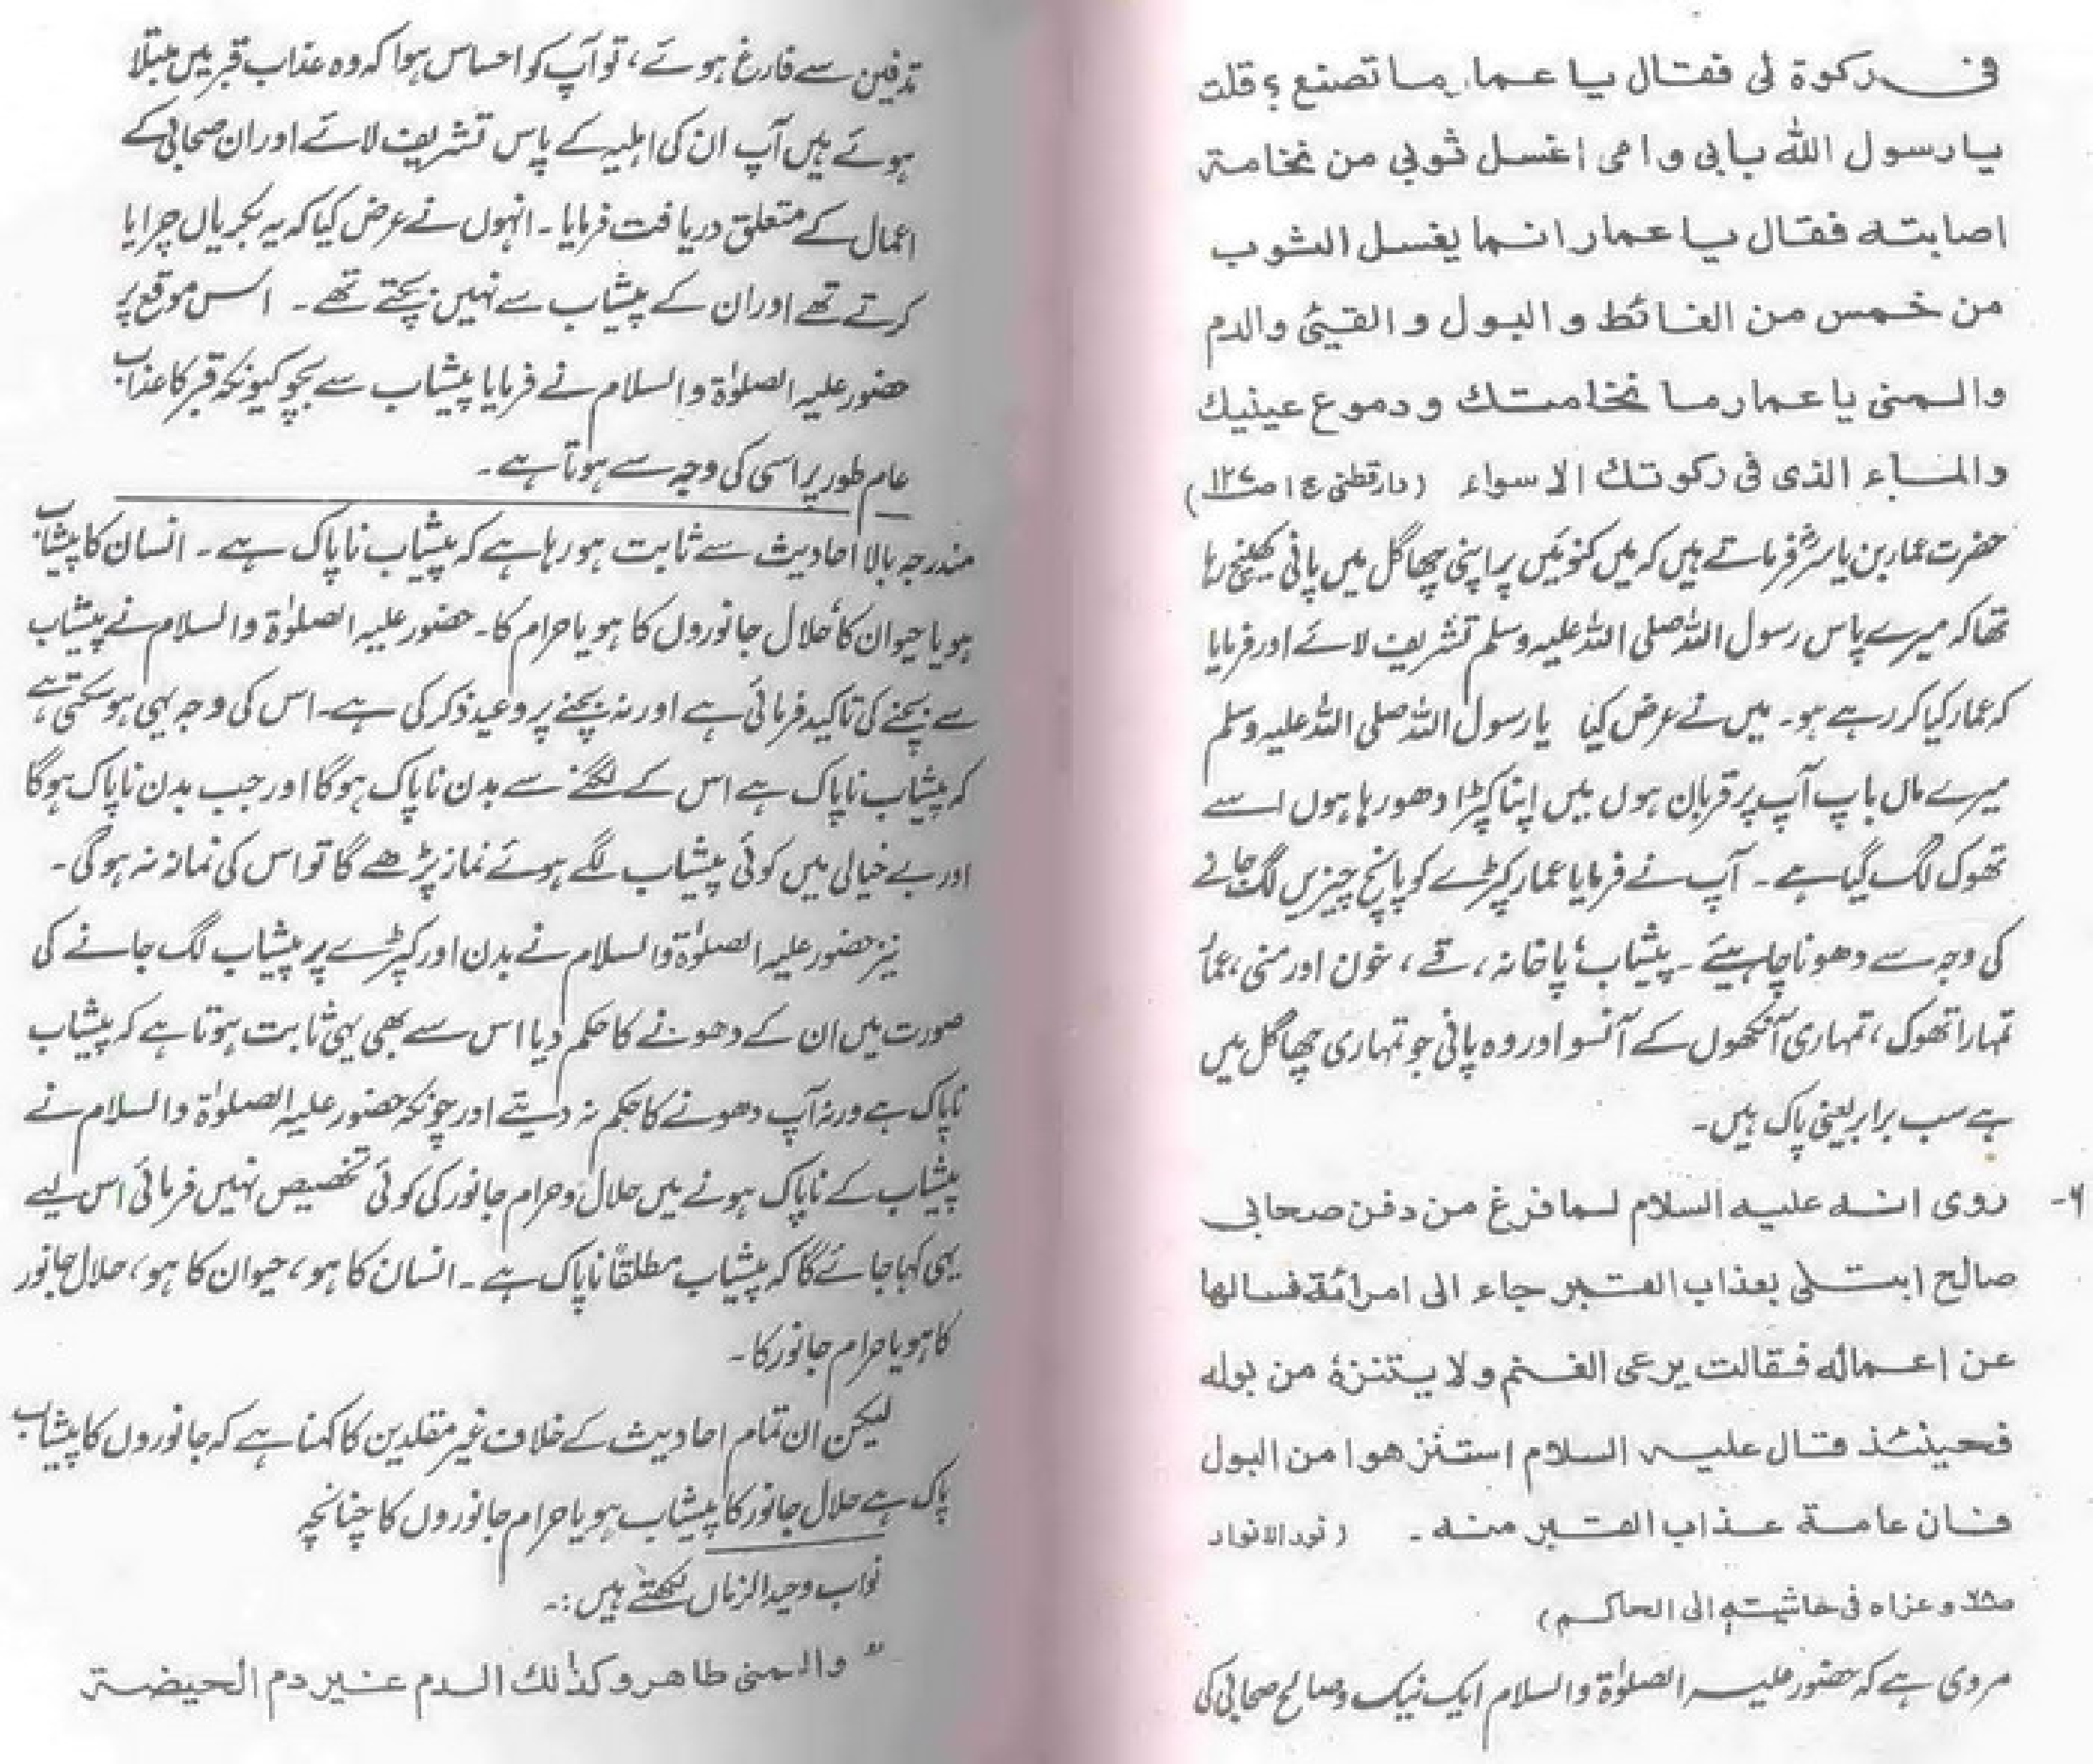 فی رکوة لی فقال یا عمار ما تصنع ؟ قلت
یا رسول الله بابی وامی اغسل ثوبی من نخامة
اصابته فقال یا عمار انما یغسل الثوب
من خمس من الغائط و البول و القیئ والدم
والمنی یا عمار ما نخامتك و دموع عینیك
والماء الذی فی رکوتك الا سواء (دارقطنی ج ۱ ص ۱۲۷)
حضرت عمار بن یاسرؓ فرماتے ہیں کہ میں کنوئیں پر اپنی چھاگل میں پانی کھینچ رہا
تھا کہ میرے پاس رسول اللہ صلی اللہ علیہ وسلم تشریف لائے اور فرمایا
کہ عمار کیا کر رہے ہو۔ میں نے عرض کیا یا رسول اللہ صلی اللہ علیہ وسلم
میرے ماں باپ آپ پر قربان ہوں میں اپنا کپڑا دھو رہا ہوں اسے
تھوک لگ گیا ہے۔ آپ نے فرمایا عمار کپڑے کو پانچ چیزیں لگ جانے
کی وجہ سے دھونا چاہیئے۔ پیشاب، پاخانہ، قے، خون اور منی، عمار
تمہارا تھوک، تمہاری آنکھوں کے آنسو اور وہ پانی جو تمہاری چھاگل میں
ہے سب برابر یعنی پاک ہیں۔
۶- روی انه علیه السلام لما فرغ من دفن صحابی
صالح ابتلی بعذاب القبر جاء الی امرائة فسالها
عن اعماله فقالت یرعی الغنم ولا یتنزهٔ من بوله
فحینئذ قال علیه السلام استنزهوا من البول
فان عامة عذاب القبر منه۔ (نور الانوار
ص۸۶ وعزاه فی حاشیته الی الحاکم)
مروی ہے کہ حضور علیہ الصلوٰۃ والسلام ایک نیک وصالح صحابی کی
تدفین سے فارغ ہوئے، تو آپ کو احساس ہوا کہ وہ عذاب قبر میں مبتلا
ہوئے ہیں آپ ان کی اہلیہ کے پاس تشریف لائے اور ان صحابی کے
اعمال کے متعلق دریافت فرمایا۔ انہوں نے عرض کیا کہ یہ بکریاں چرایا
کرتے تھے اور ان کے پیشاب سے نہیں بچتے تھے۔ اس موقع پر
حضور علیہ الصلوٰۃ والسلام نے فرمایا پیشاب سے بچو کیونکہ قبر کا عذاب
عام طور پر اسی کی وجہ سے ہوتا ہے۔
مندرجہ بالا احادیث سے ثابت ہو رہا ہے کہ پیشاب ناپاک ہے۔ انسان کا پیشاب
ہو یا حیوان کا، حلال جانوروں کا ہو یا حرام کا۔ حضور علیہ الصلوٰۃ والسلام نے پیشاب
سے بچنے کی تاکید فرمائی ہے اور نہ بچنے پر وعید ذکر کی ہے۔ اس کی وجہ یہی ہو سکتی ہے
کہ پیشاب ناپاک ہے اس کے لگنے سے بدن ناپاک ہوگا اور جب بدن ناپاک ہوگا
اور بے خیالی میں کوئی پیشاب لگے ہوئے نماز پڑھے گا تو اس کی نماز نہ ہوگی۔
نیز حضور علیہ الصلوٰۃ والسلام نے بدن اور کپڑے پر پیشاب لگ جانے کی
صورت میں ان کے دھونے کا حکم دیا اس سے بھی یہی ثابت ہوتا ہے کہ پیشاب
ناپاک ہے ورنہ آپ دھونے کا حکم نہ دیتے اور چونکہ حضور علیہ الصلوٰۃ والسلام نے
پیشاب کے ناپاک ہونے میں حلال وحرام جانور کی کوئی تخصیص نہیں فرمائی اس لیے
یہی کہا جائے گا کہ پیشاب مطلقاً ناپاک ہے۔ انسان کا ہو، حیوان کا ہو، حلال جانور
کا ہو یا حرام جانور کا۔
لیکن ان تمام احادیث کے خلاف غیر مقلدین کا کہنا ہے کہ جانوروں کا پیشاب
پاک ہے حلال جانور کا پیشاب ہو یا حرام جانوروں کا چنانچہ
نواب وحید الزماں لکھتے ہیں:۔
"والمنی طاهر وکذلك الدم غیر دم الحیضة